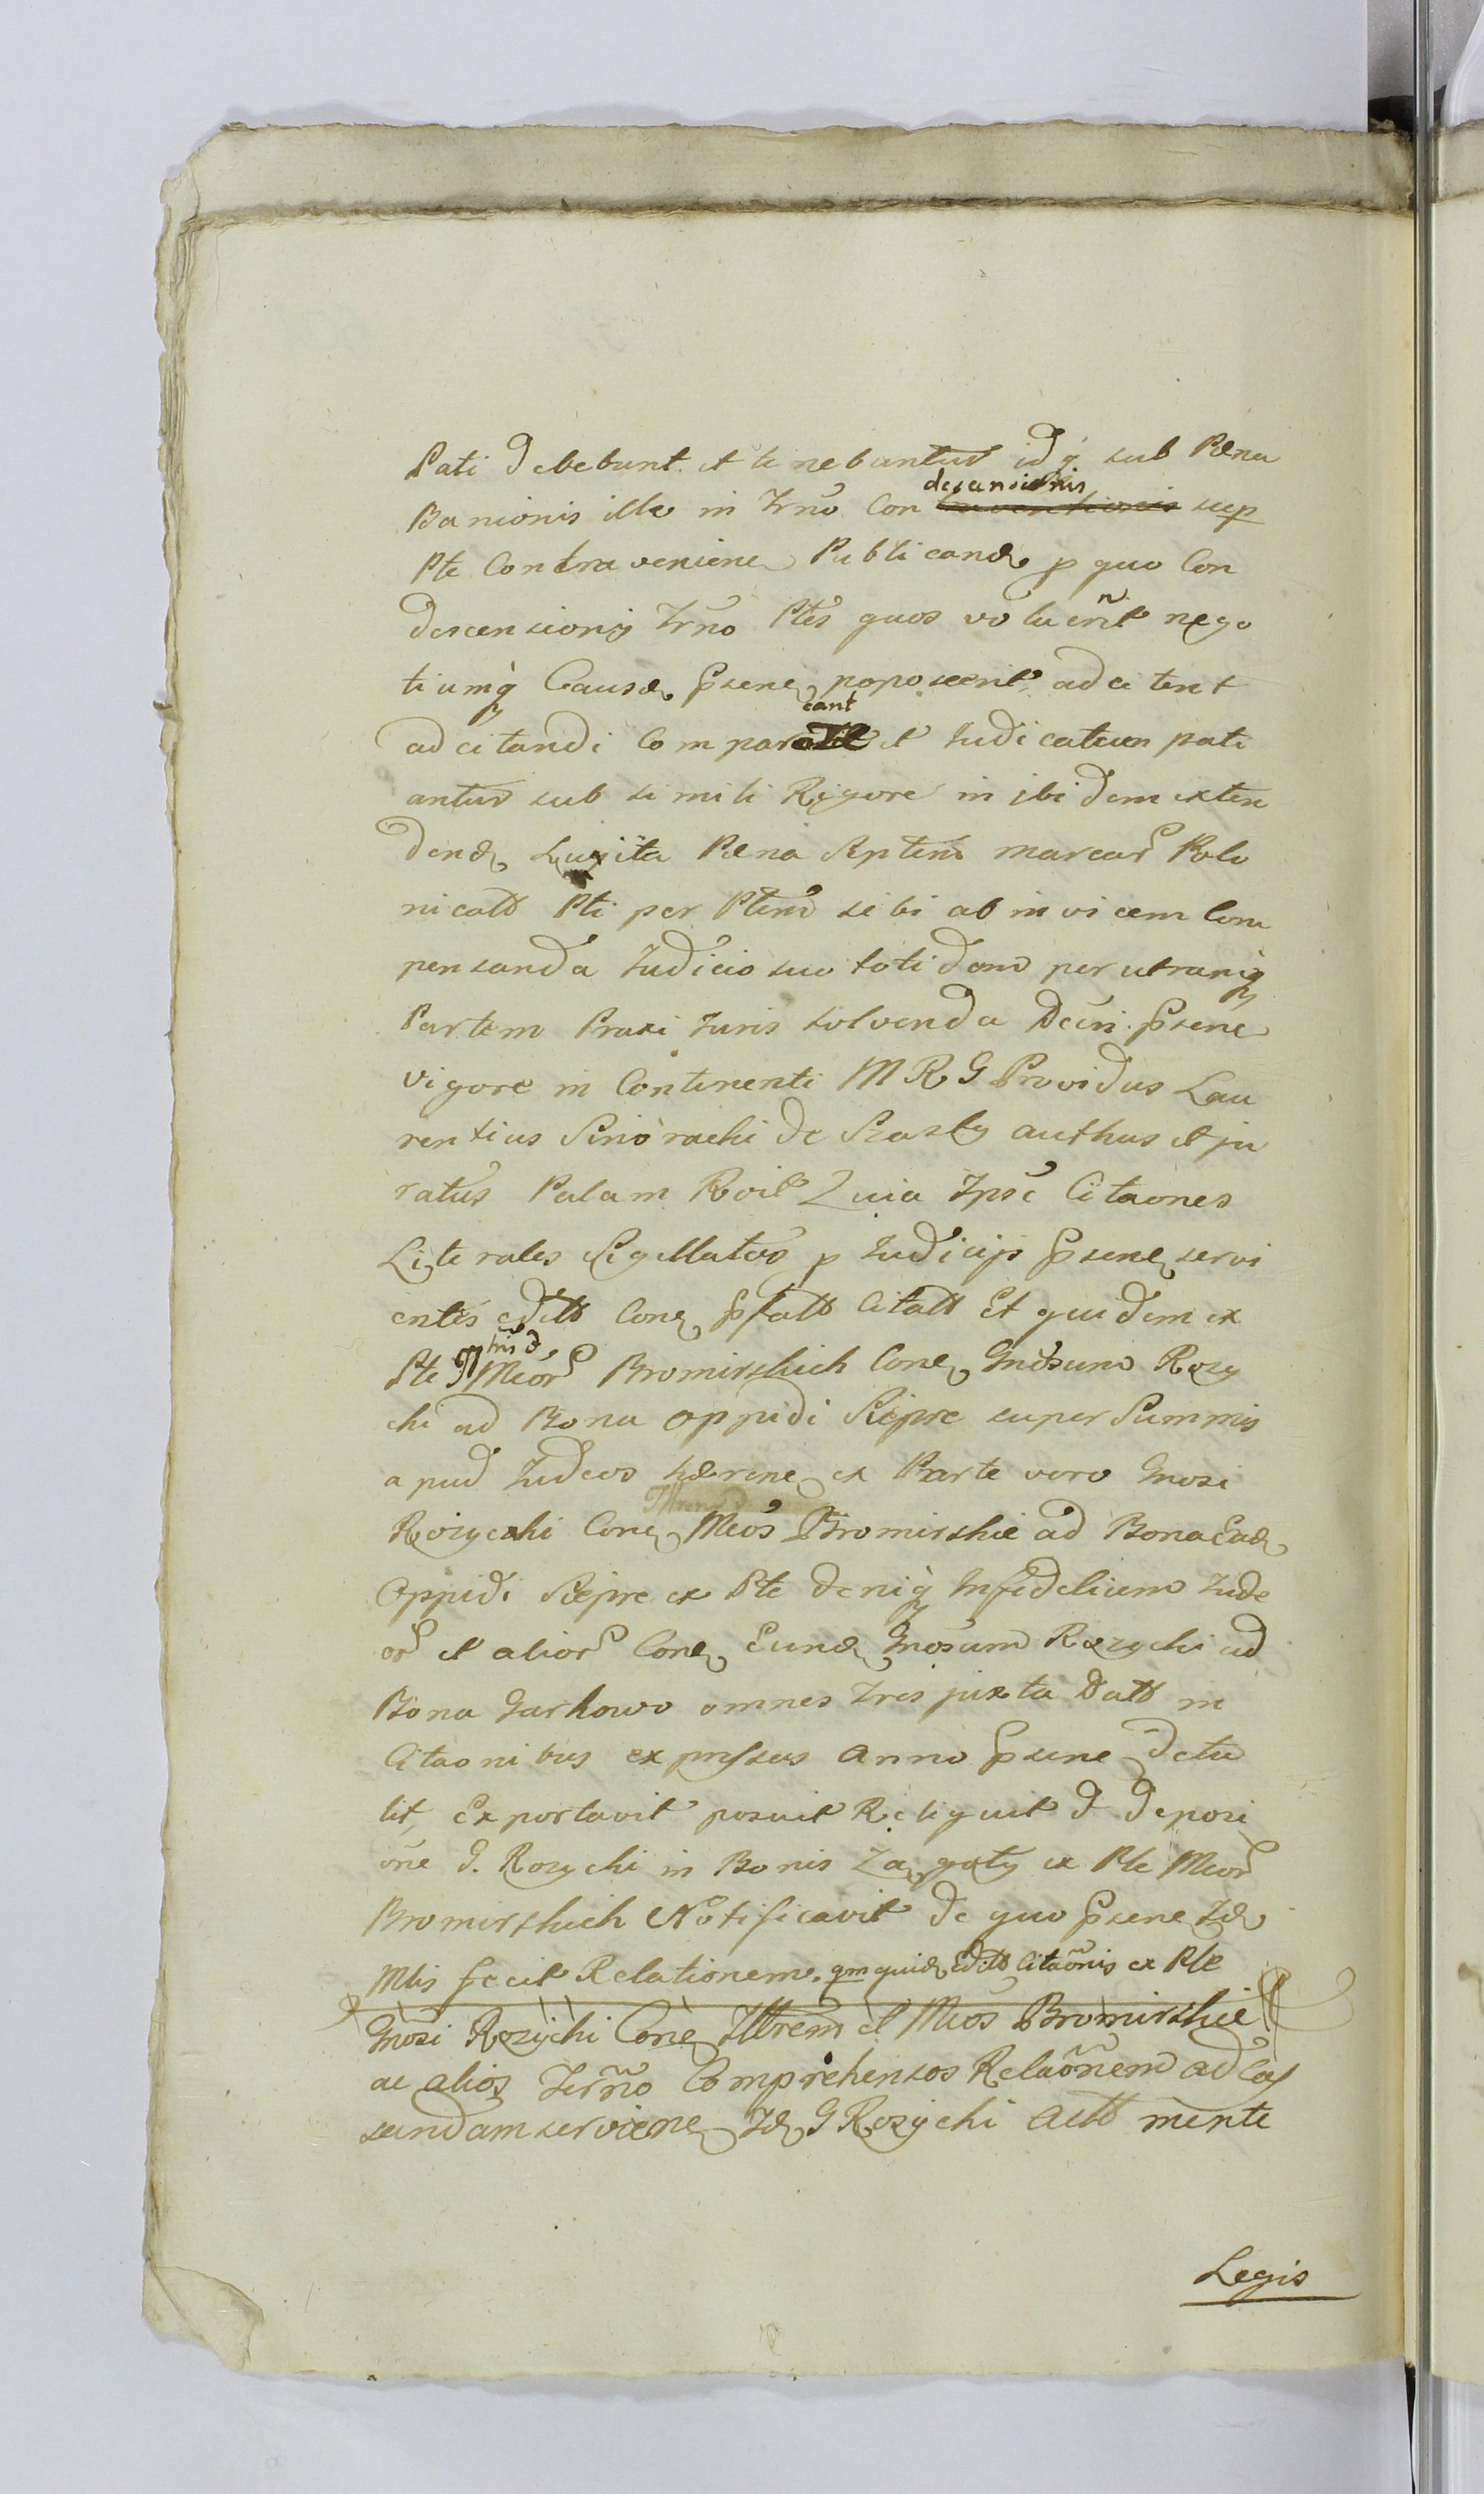 Pati debebunt et tenebuntur idq́ sub Pæna
descensionis
Banionis illæ in Trno Con inventionis sup
Pte Contravenien Publicand p quo Con
descensionis Trno Ptes quos voluerint nego
tiumq́ Causæ Psen poposcerit adcitent
cant
adcitandi Compar et Judicatum pati
antur sub simili Rigore in ibidem exten
dend Luita Pæna Septem marcar Polo
nicalt Pti per Ptem sibi ab invicem Com
pensanda Judicio suo totidem per utramq
Partem Praxi Juris solvenda Decri Psen
vigore in Continenti M R G Providus Lau
rentius Sinoracki de authus et ju
ratus Palam Rvit Quia Ipse Citaones
Literales Sigillatas p Judicijs Psen servi
entes editt Con pfatt Citatt Et quidem ex
Pte Mcor Bromirskich Con Gnosum Rozy
cki ad Bona oppidi Siepre super Summis
apud Judæos hæren ex Parte vero Gnosi
Rozycki Con Mcos Bromirskie ad Bona Ead
Oppidi Siepre ex Pte deniq́ Infidelium Jude
or et alior Con Eund Gnosum Rozycki ad
Bona Garkowo omnes Tres juxta Datt in
Citaonibus expressas Anno Psen detu
lit, Exportavit posuit Reliquit & deposi
one G. Rozycki in Bonis ex Pte Mcor
Bromirskich Notificavit de quo Psen Id
Mlis fecit Relationem. qm quid Editt Citaonis ex Pte
Gnosi Rozycki Con Illrem et Mcos Bromirskie
ac alios Termo Comprehensos Relaonem ad Cas
sandam servien Id G Rozycki Actt mente
Legis